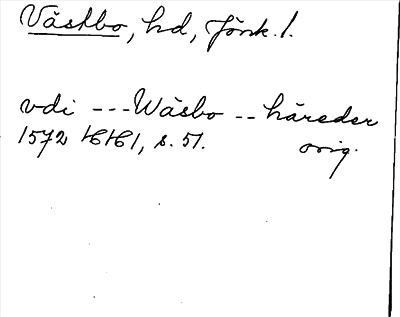 Västbo, hd, Jönk. l.
vdi --- Wäsbo -- häreder
1572 HH 1, s. 51. orig.